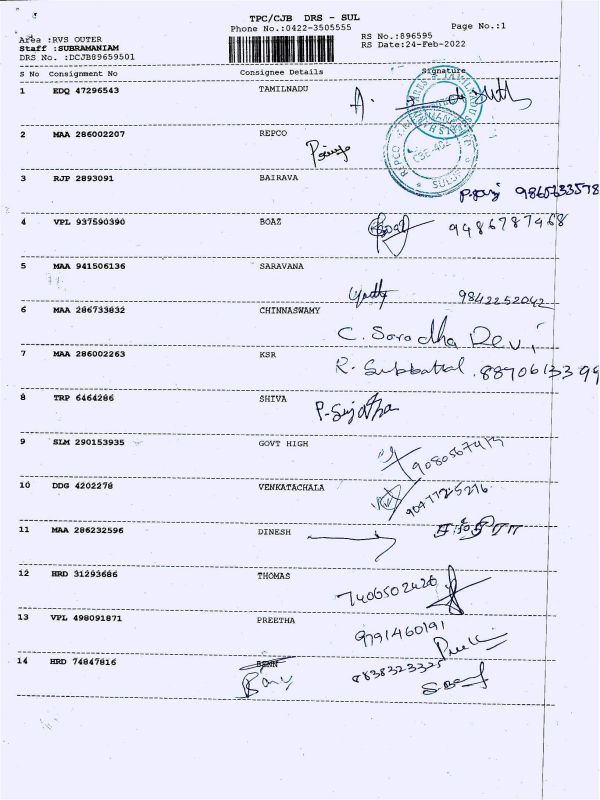 TPC/CJB DRS - SUL
Phone No.:0422-3505555
Page No.:1
Area :RVS OUTER
RS No.:896595
Staff :SUBRAMANIAM
RS Date:24-Feb-2022
DRS No. :DCJB89659501
S No Consignment No Consignee Details Signature
1 EDQ 47296543 TAMILNADU
2 MAA 286002207 REPCO
3 RJP 2893091 BAIRAVA
9865633578
4 VPL 937590390 BOAZ
9486787468
5 MAA 941506136 SARAVANA
9842252042
6 MAA 286733832 CHINNASWAMY
C. Sarodha Devi
7 MAA 286002263 KSR
R. Subbattal. 8870613399
8 TRP 6464286 SHIVA
P. Sujatha
9 SLM 290153935 GOVT HIGH
10 DDG 4202278 VENKATACHALA
9047725216
11 MAA 286232596 DINESH
12 HRD 31293686 THOMAS
7406502426
13 VPL 498091871 PREETHA
9791460191
14 HRD 74847816 BENN
8838323325